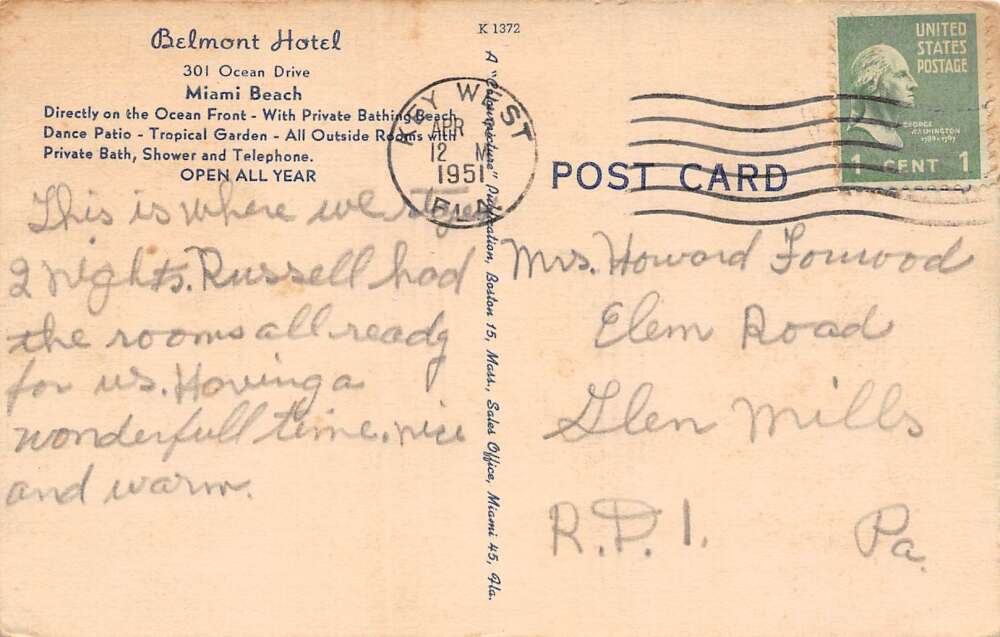 K 1372
Belmont Hotel
301 Ocean Drive
Miami Beach
Directly on the Ocean Front - With Private Bathing Beach
Dance Patio - Tropical Garden - All Outside Rooms with
Private Bath, Shower and Telephone.
OPEN ALL YEAR
This is where we stayed
2 nights. Russell had
the rooms all ready
for us. Having a
wonderfull time. nice
and warm.
A "Colourpicture" Publication, Boston 15, Mass., Sales Office, Miami 45, Fla.
KEY WEST
APR
12 M
1951
FLA
POST CARD
UNITED
STATES
POSTAGE
GEORGE
WASHINGTON
1789-1797
1 CENT 1
Mrs. Howard Forwood
Elem Road
Glen Mills
R.D. 1. Pa.